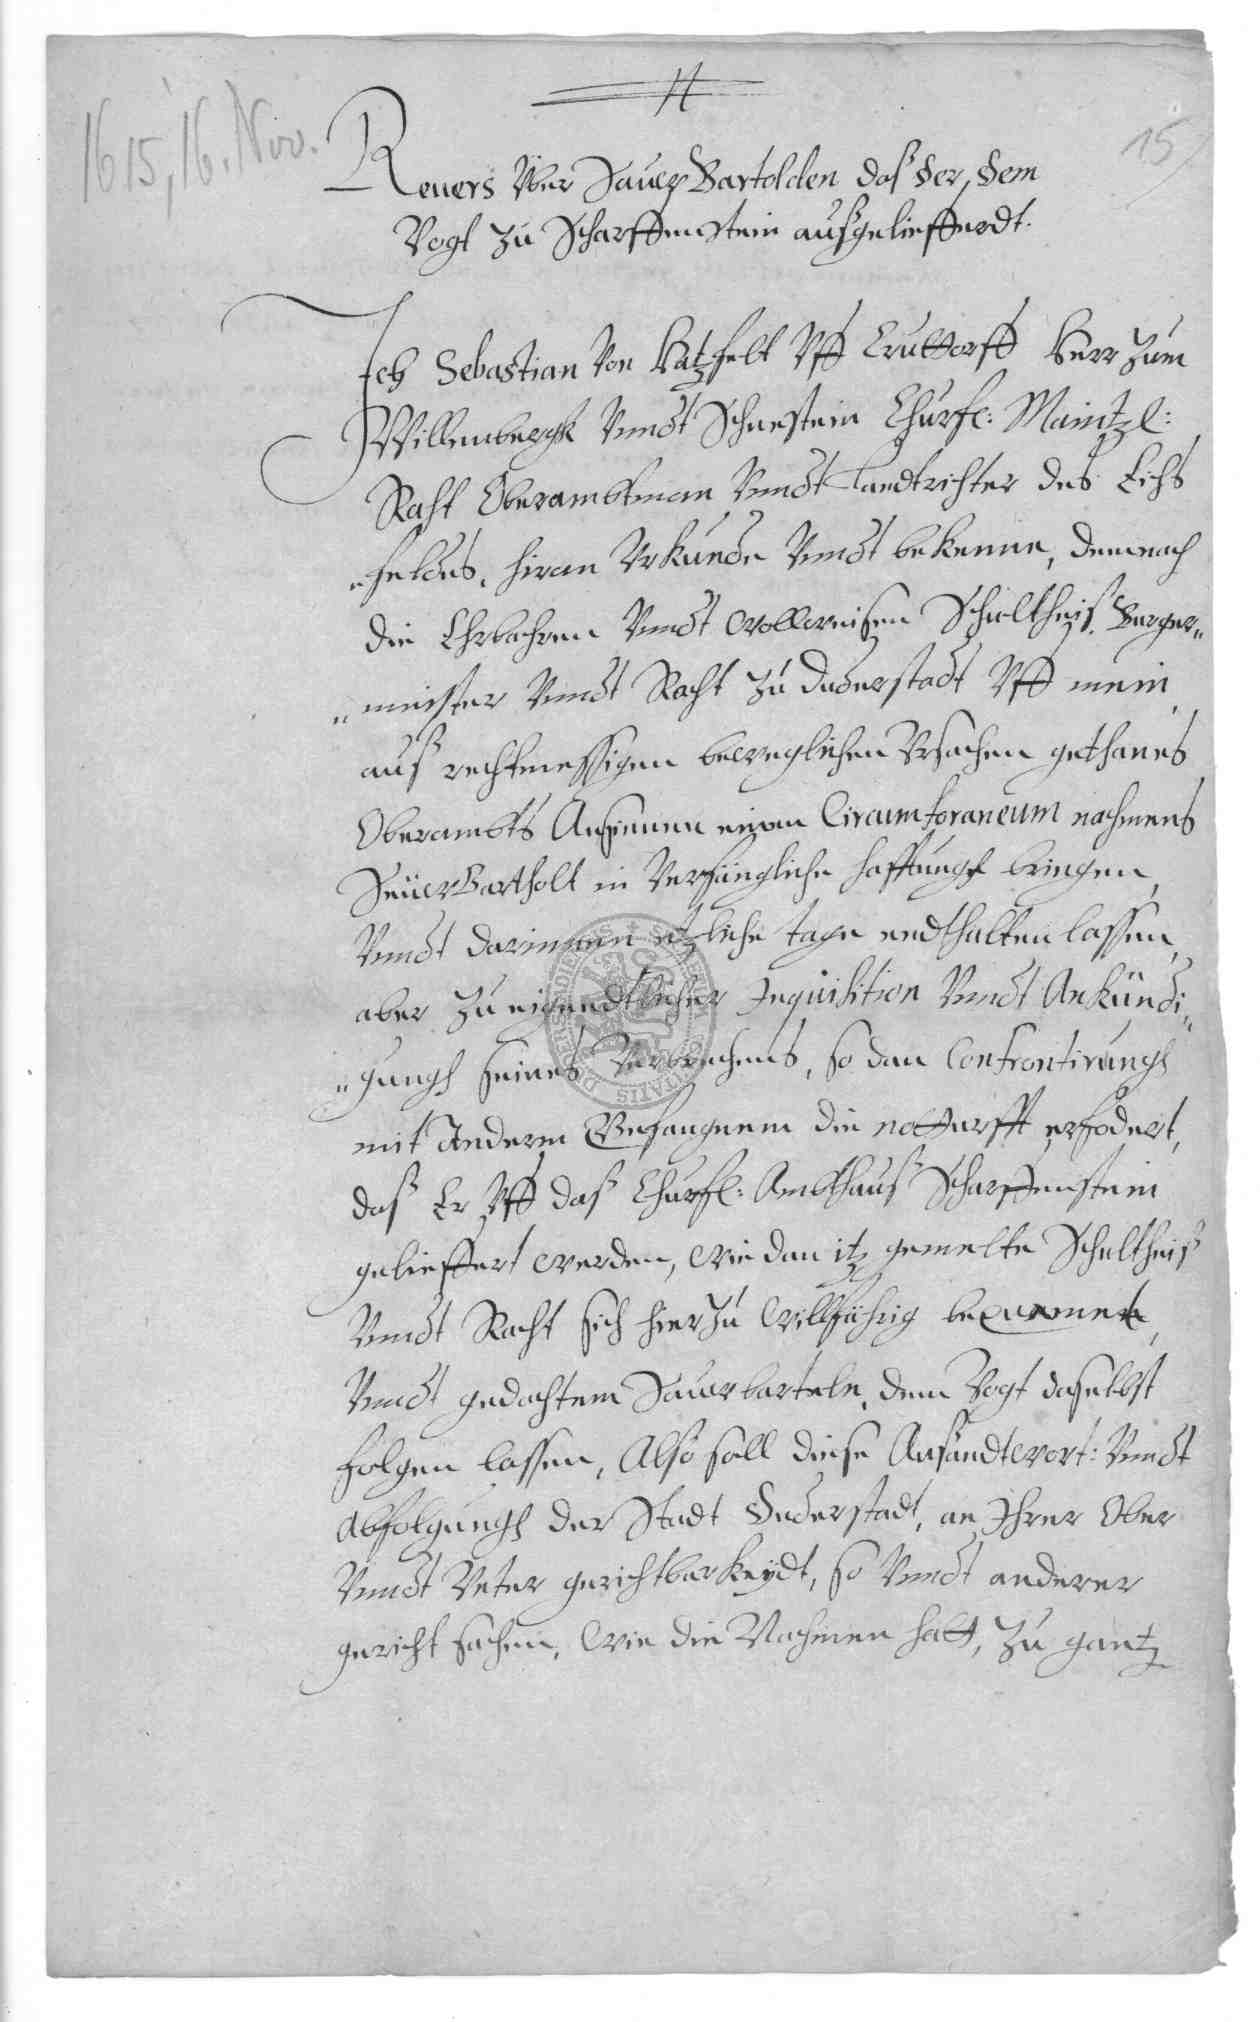 H
1615, 16. Nov.
15
Reuers Vber Sauer Bartolden das der, dem
Vogt zu Scharffenstein außgeliefferdt.
Ich Sebastian Von Hatzfelt Vff Cruttorff Herr zum
Willenbergk Vundt Schnestein Churfl: Maintzl:
Raht Oberambtman Vundt Landtrichter des Eichs
"feldes, hiran Vrkunde Vundt bekenne, demnach
die Ehrbahren Vundt wollweisen Schultheiß Burger„
"meister Vundt Raht zu Duderstadt Vff mein
auß rechtmessigen beweglichen Vrsachen gethanes
Oberambts Ansinnen einen Circumforaneum nahmens
Seüer Bartholt in Verfängliche hafftungk bringen,
Vundt darinnen etzliche tage endthalten lassen,
aber zu eigendtlicher Inquisition Vundt Ankündi„
"gungh seines Verbrechens, so dan Confrontirungh
mit Anderm Gefangnem die notturfft erfodert,
das Er Vff das Churfl: Ambthauß Scharffenstein
gelieffert werden, wie dan itz gemelte Schultheiß
Vundt Raht sich hierzu willfährig
Vundt gedachtem Sauerbarteln, dem Vogt daselbst
folgen lassen, Also soll diese Außandtwort: Vundt
Abfolgungh der Stadt Duderstadt, an Ihrer Ober
Vundt Vnter gerichtbarkeydt, so Vundt anderer
gericht sachen, wie die Nahmen hatt, zu gantz